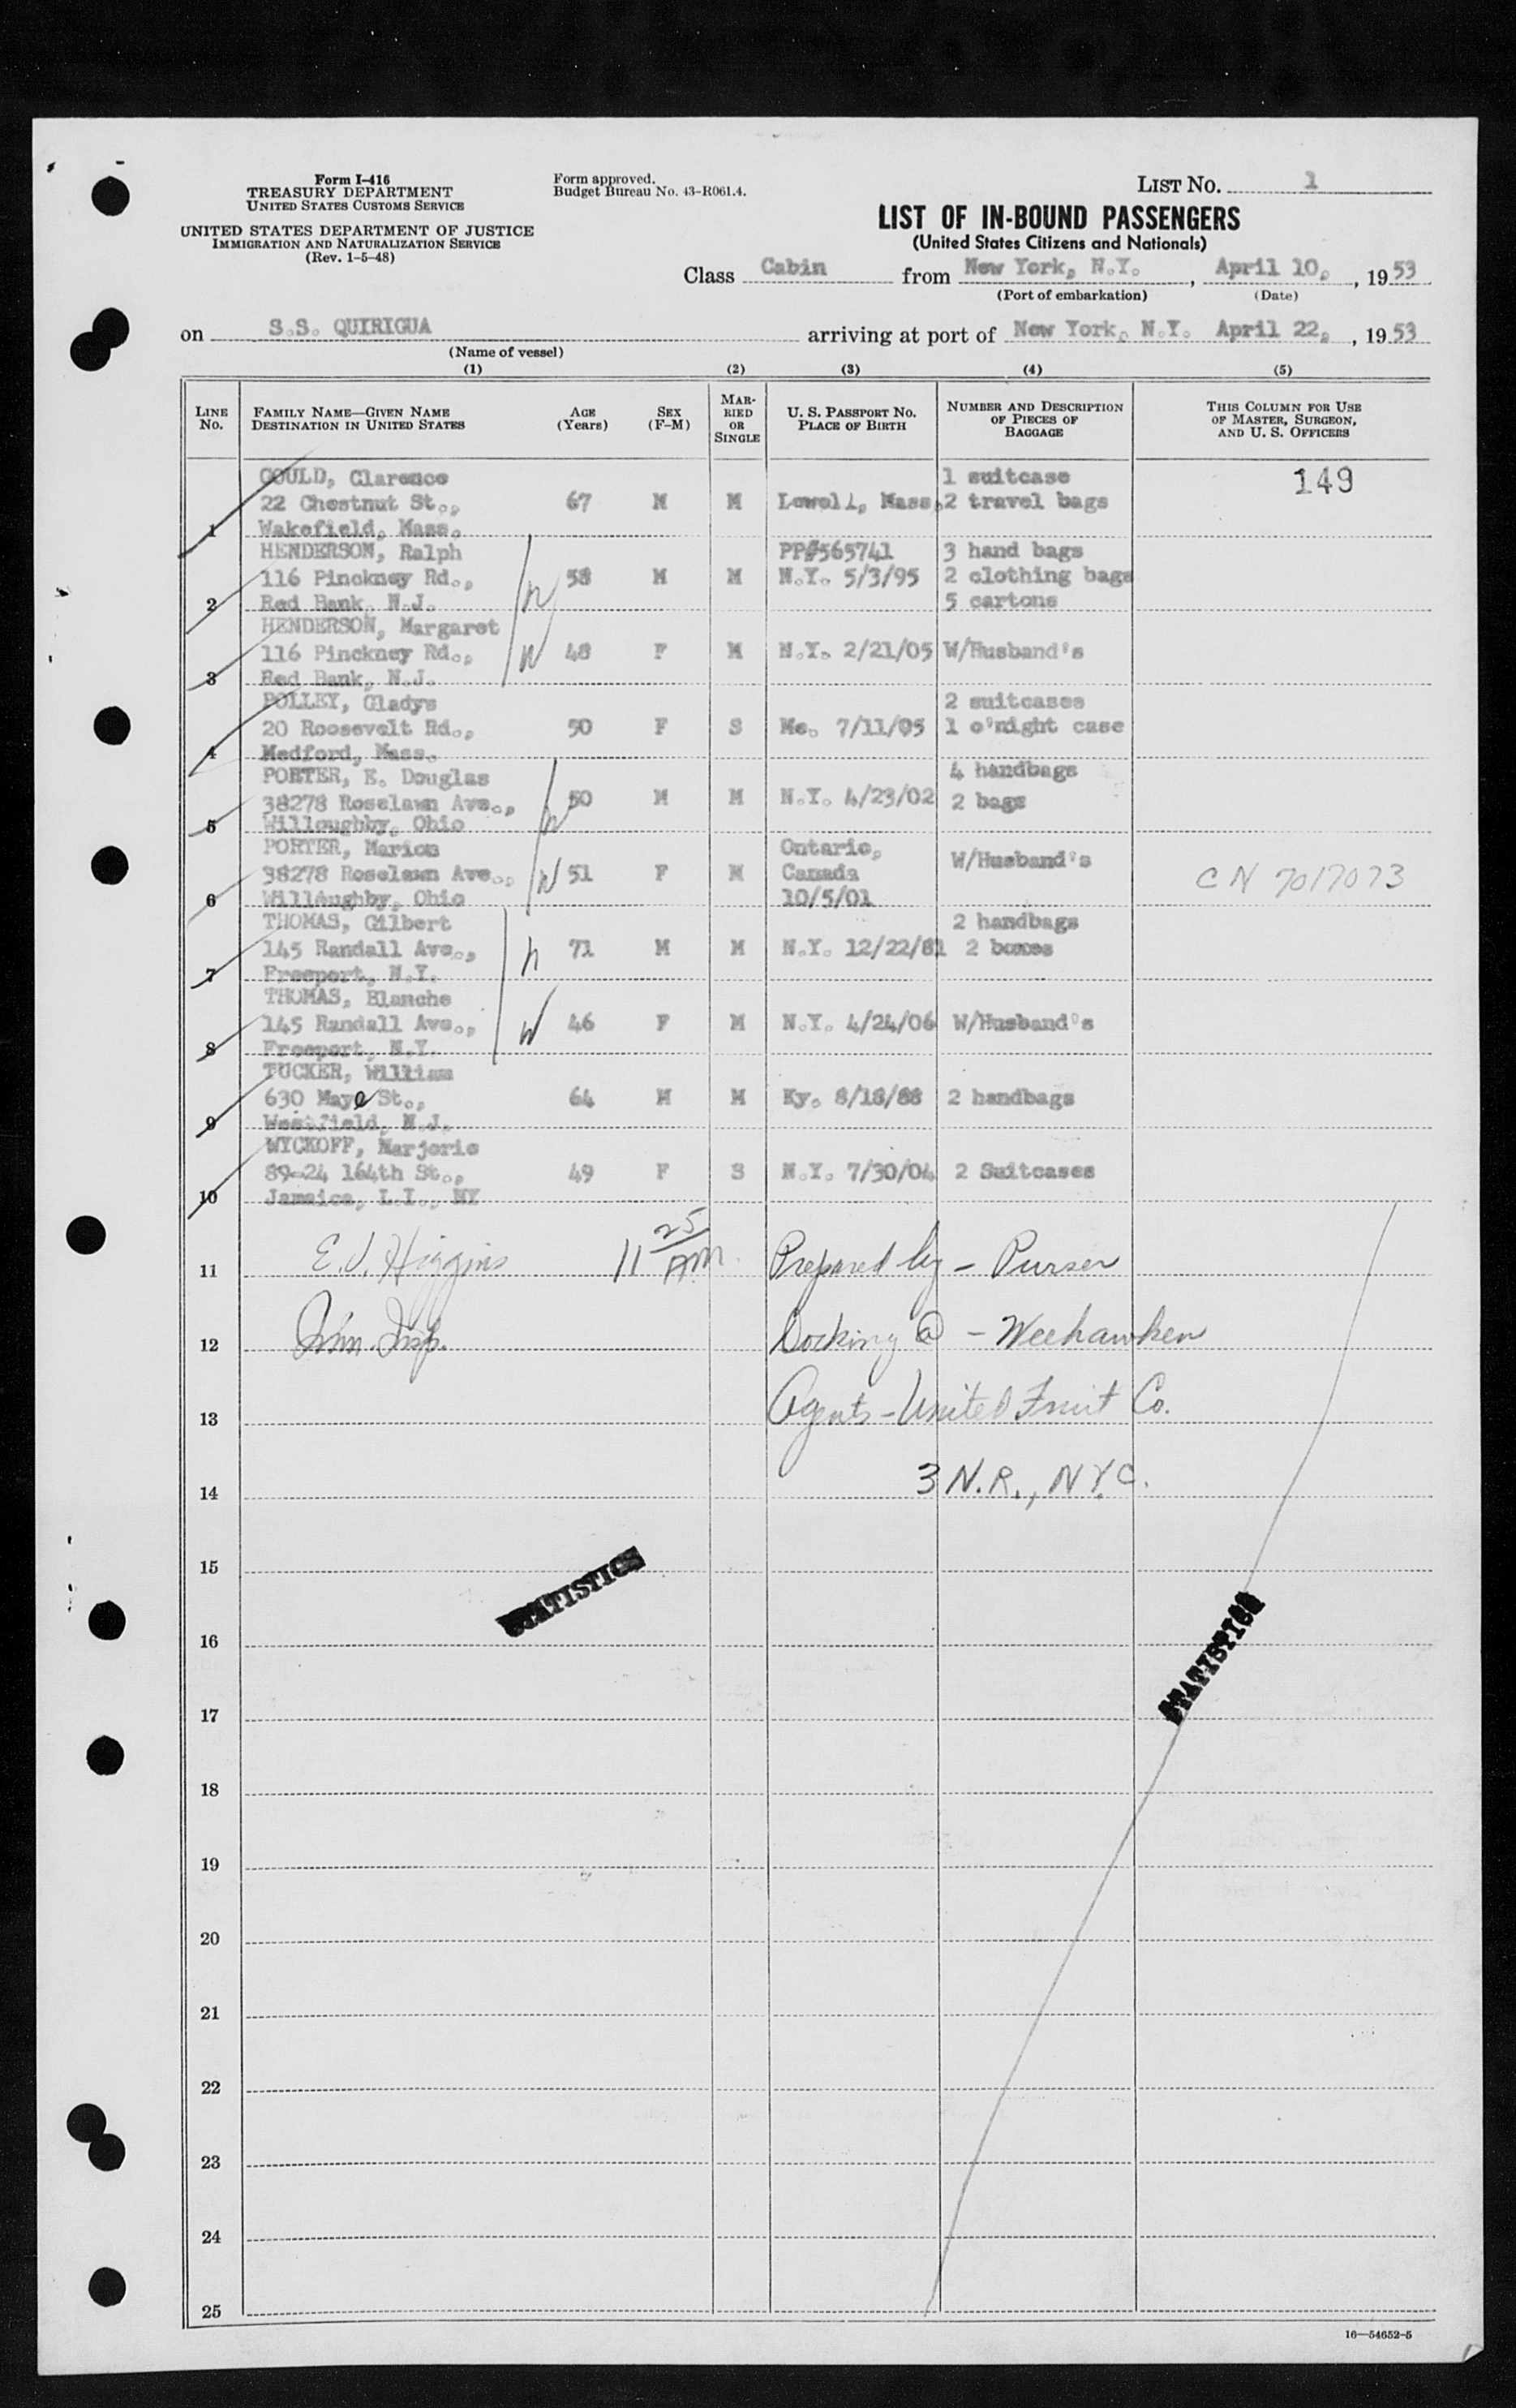 Form I-416
TREASURY DEPARTMENT
UNITED STATES CUSTOMS SERVICE
UNITED STATES DEPARTMENT OF JUSTICE
IMMIGRATION AND NATURALIZATION SERVICE
(Rev. 1-5-48)
Form approved.
Budget Bureau No. 43-R061.4.
LIST No. 1
LIST OF IN-BOUND PASSENGERS
(United States Citizens and Nationals)
Class Cabin from New York, N.Y. , April 10, , 19 53
(Port of embarkation) (Date)
on S.S. QUIRIGUA arriving at port of New York, N.Y. April 22, , 19 53
(Name of vessel)
(1) (2) (3) (4) (5)
LINE No.
FAMILY NAME—GIVEN NAME
DESTINATION IN UNITED STATES
AGE (Years)
SEX (F-M)
MARRIED OR SINGLE
U. S. PASSPORT No.
PLACE OF BIRTH
NUMBER AND DESCRIPTION OF PIECES OF BAGGAGE
THIS COLUMN FOR USE OF MASTER, SURGEON, AND U. S. OFFICERS
GOULD, Clarence 1 suitcase 149
22 Chestnut St., 67 M M Lowell, Mass. 2 travel bags
1 Wakefield, Mass.
HENDERSON, Ralph PP#565741 3 hand bags
116 Pinckney Rd., 58 M M N.Y. 5/3/95 2 clothing bags
2 Red Bank, N.J. 5 cartons
HENDERSON, Margaret
116 Pinckney Rd., W 48 F M N.Y. 2/21/05 W/Husband's
3 Red Bank, N.J.
POLLEY, Gladys 2 suitcases
20 Roosevelt Rd., 50 F S Me. 7/11/05 1 o'night case
4 Medford, Mass.
PORTER, E. Douglas 4 handbags
38278 Roselawn Ave., 50 M M N.Y. 4/23/02 2 bags
5 Willoughby, Ohio
PORTER, Marion Ontario,
38278 Roselawn Ave., W 51 F M Canada W/Husband's CN 7017073
6 Willoughby, Ohio 10/5/01
THOMAS, Gilbert 2 handbags
145 Randall Ave., h 71 M M N.Y. 12/22/81 2 boxes
7 Freeport, N.Y.
THOMAS, Blanche
145 Randall Ave., W 46 F M N.Y. 4/24/06 W/Husband's
8 Freeport, N.Y.
TUCKER, William
630 Maye St., 64 M M Ky. 8/18/88 2 handbags
9 Westfield, N.J.
WYCKOFF, Marjorie
89-24 164th St., 49 F S N.Y. 7/30/04 2 Suitcases
10 Jamaica, L.I., NY
11 E.J. Higgins 11 25 AM Prepared by - Purser
12 Imm. Insp. Docking @ - Weehawken
13 Agents - United Fruit Co.
14 3 N.R., N.Y.C.
15
STATISTICS
16
STATISTICS
17
18
19
20
21
22
23
24
25
16—54652-5